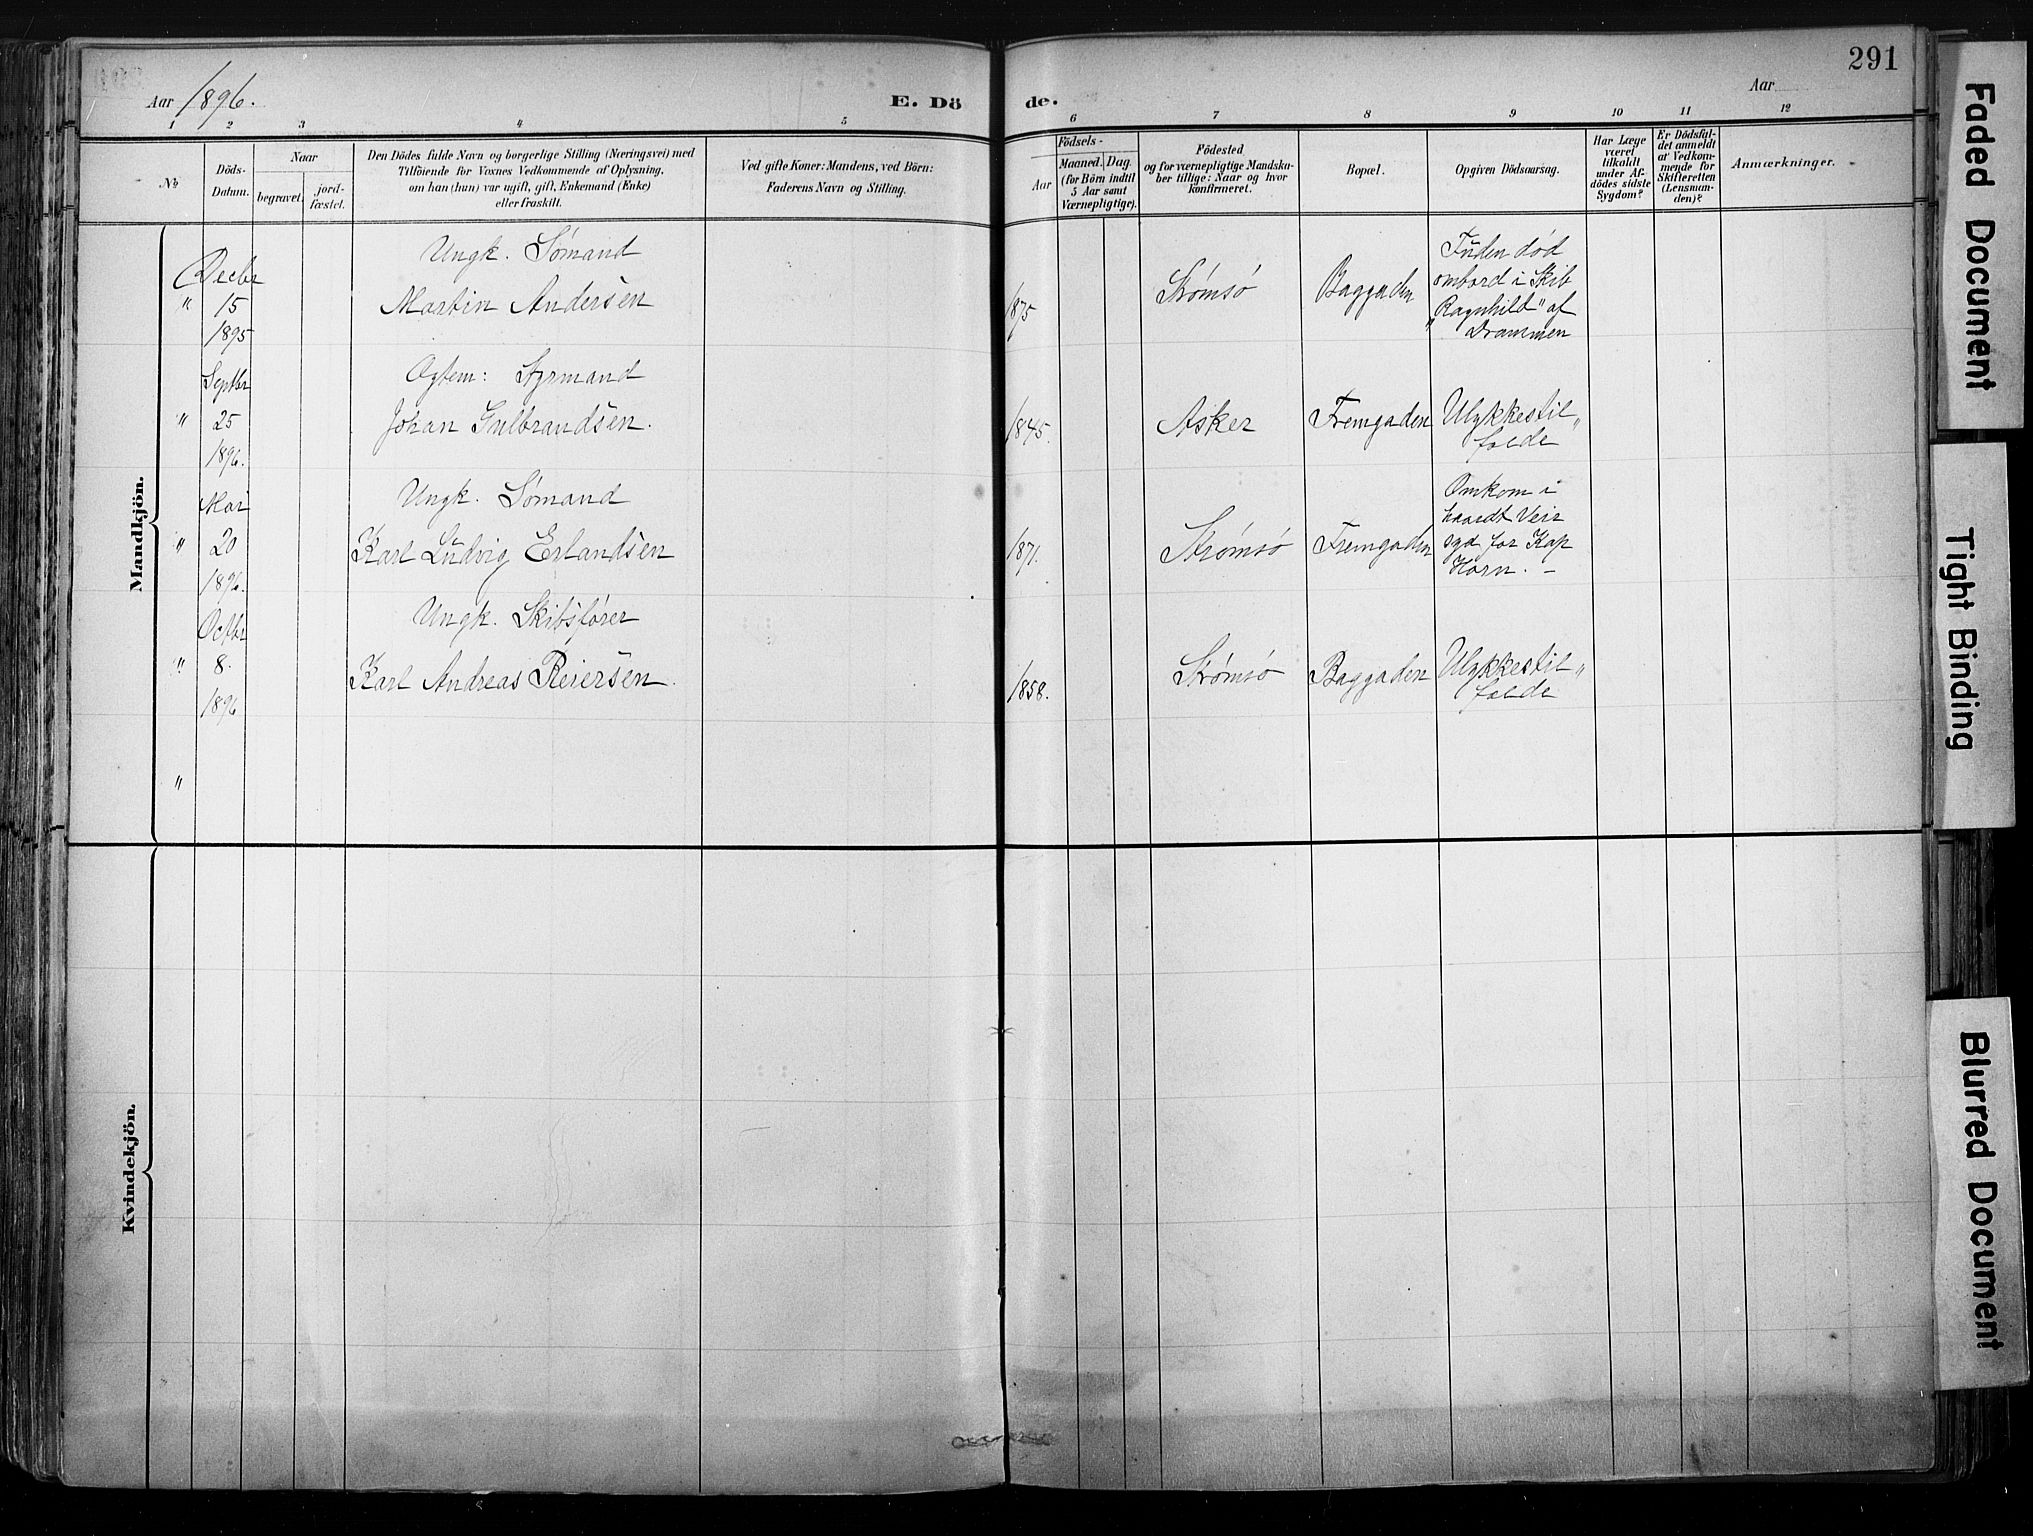 291
Aar 1896.
E. Dö de.
Aar
1 2 3 4 5 6 7 8 9 10 11 12
No
Döds-
Datum.
Naar
begravet.
jord-
fæstet.
Den Dödes fulde Navn og borgerlige Stilling (Næringsvei) med
Tilföiende for Voxnes Vedkommende af Oplysning,
om han (hun) var ugift, gift, Enkemand (Enke)
eller fraskilt.
Ved gifte Koner: Mandens, ved Börn:
Faderens Navn og Stilling.
Födsels-
Aar
Maaned. Dag.
(for Börn indtil
5 Aar samt
Værnepligtige).
Födested
og for værnepligtige Mandska-
ber tillige: Naar og hvor
konfirmeret.
Bopæl.
Opgiven Dödsaarsag.
Har Læge
været
tilkaldt
under Af-
dödes sidste
Sygdom?
Er Dödsful-
det anmeldt
af Vedkom-
mende for
Skifteretten
(Lensman-
den)?
Anmærkninger.
Mandkjön.
Decbr
" 15
1895
Ungk. Sømand
Martin Andersen
1875
Strømsø
Baggaden
Funden død
ombord i Skib
"Ragnhild" af
Drammen
Septbr
" 25
1896.
Ogtem: Styrmand
Johan Gulbrandsen.
1845.
Asker
Fremgaden
Ulykkestil„
fælde
Mai
" 20
1896.
Ungk. Sømand
Karl Ludvig Erlandsen
1871.
Strømsø
Fremgaden
Omkom i
haardt Veir
syd for Kap
Horn. –
Octbr
" 8.
1896
Ungk. Skibsfører
Karl Andreas Reiersen.
1858.
Strømsø
Baggaden
Ulykkestil„
fælde
"
Kvindekjön.
Faded Document
Tight Binding
Blurred Document